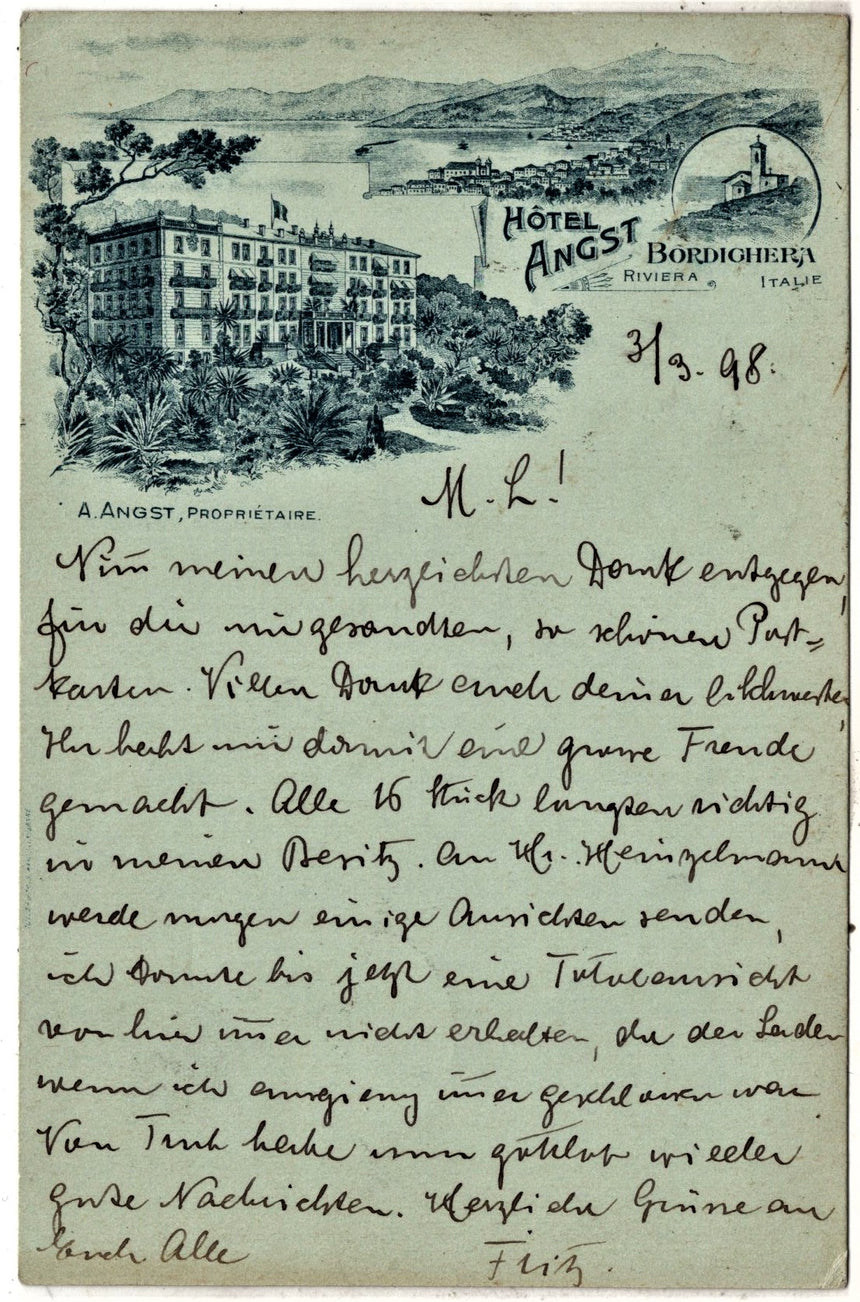 HÔTEL
ANGST
BORDIGHERA
RIVIERA ITALIE
3/3. 98.
A. ANGST, PROPRIÉTAIRE.
M. L!
Nim̄ meinen herzlichsten Dank entgegen,
für die mir gesandten, so schönen Post=
karten. Villen Dank auch deiner Schwester,
Ihr habt mir damit eine grosse Freude
gemacht. Alle 16 Stück langten richtig
in meinen Besitz. An Hr. Heinzelmann
werde morgen einige Ansichten senden,
ich konnte bis jetzt eine Totalansicht
von hier im̄er nicht erhalten, da der Laden
wenn ich ausgieng im̄er geschlossen war
Von habe nun gottlob wieder
gute Nachrichten. Herzliche Grüsse an
Euch Alle Fritz.